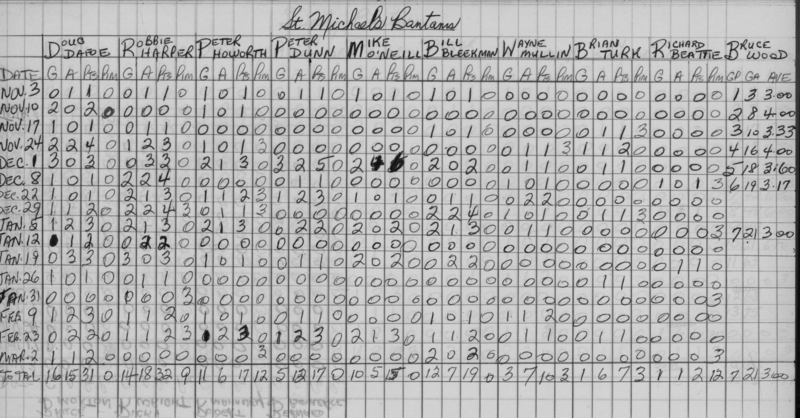 St. Michaels Bantams
DOUG DAFOE ROBBIE HARPER PETER HOWORTH PETER DUNN MIKE O'NEILL BILL BLEEKMAN WAYNE MULLIN BRIAN TURK RICHARD BEATTIE BRUCE WOOD
DATE G A Pts Pim G A Pts Pim G A Pts Pim G A Pts Pim G A Pts Pim G A Pts Pim G A Pts Pim G A Pts Pim G A Pts Pim GP GA AVE
NOV. 3 0 1 1 0 0 1 1 0 1 0 1 0 0 1 1 0 1 0 1 0 1 0 1 0 0 0 0 0 0 0 0 0 0 0 0 0 1 3 3.00
NOV. 10 2 0 2 0 0 0 0 0 1 0 1 0 0 0 0 0 0 0 0 0 0 0 0 0 0 0 0 0 0 0 0 0 0 0 0 0 2 8 4.00
NOV. 17 1 0 1 0 0 1 1 0 0 0 0 0 0 0 0 0 0 0 0 0 1 0 1 0 0 0 0 0 0 1 1 3 0 0 0 0 3 10 3.33
NOV. 24 2 2 4 0 1 2 3 0 1 0 1 3 0 0 0 0 0 0 0 0 0 0 0 0 0 1 1 3 1 1 2 0 0 0 0 0 4 16 4.00
DEC. 1 3 0 3 0 0 3 3 0 2 1 3 0 3 2 5 0 2 0 2 0 2 0 0 1 1 0 0 1 1 0 0 0 0 0 5 18 3.60
DEC. 8 1 0 1 0 2 2 4 0 0 0 0 0 0 1 1 0 0 0 0 0 0 0 0 0 1 0 1 0 0 0 0 0 1 0 1 3 6 19 3.17
DEC. 22 1 0 1 0 2 1 3 0 1 1 2 3 1 2 3 0 1 0 1 0 0 1 1 0 0 2 2 0 0 0 0 0 0 0 0 0
DEC. 29 1 1 2 0 2 2 4 3 0 1 1 3 0 0 0 0 0 0 0 0 2 2 4 0 1 0 1 0 0 1 1 3 0 0 0 0
JAN. 5 1 2 3 0 2 1 3 0 2 1 3 0 0 2 2 0 2 0 2 0 2 1 3 0 0 1 1 0 0 0 0 0 0 0 0 3 7 21 3.00
JAN. 12 1 2 0 0 2 2 0 0 0 0 0 0 0 0 0 0 0 0 0 0 0 0 0 0 0 0 0 0 0 0 0 0 0 0 0
JAN. 19 0 3 3 0 3 0 3 0 1 0 1 0 0 1 1 0 2 0 2 0 0 2 2 0 0 0 0 0 0 0 0 0 0 1 1 0
JAN. 26 1 0 1 0 0 1 1 0 0 0 0 0 0 0 0 0 0 0 0 0 0 0 0 0 0 0 0 0 0 1 1 0 0 0 0 0
JAN. 31 0 0 0 0 0 0 0 3 0 0 0 0 0 0 0 0 0 0 0 0 0 0 0 0 0 0 0 0 0 0 0 0 0 0 0 3
FEB. 9 1 2 3 0 1 1 2 0 1 0 1 0 0 1 1 0 0 0 0 0 1 0 1 0 1 1 2 0 0 0 0 0 0 0 0 0
FEB. 23 0 2 2 0 1 1 2 3 2 3 0 1 2 3 0 2 1 3 0 1 1 2 0 0 1 1 0 0 1 1 0 0 0 0 0
MAR. 2 1 1 2 0 0 0 0 0 0 0 0 3 0 0 0 0 0 0 0 0 2 0 2 0 0 0 0 0 0 0 0 0 0 0 0 3
TOTAL 16 15 31 0 14 18 32 9 11 6 17 12 5 12 17 0 10 5 15 0 12 7 19 0 3 7 10 3 1 6 7 3 1 1 2 12 7 21 3.00